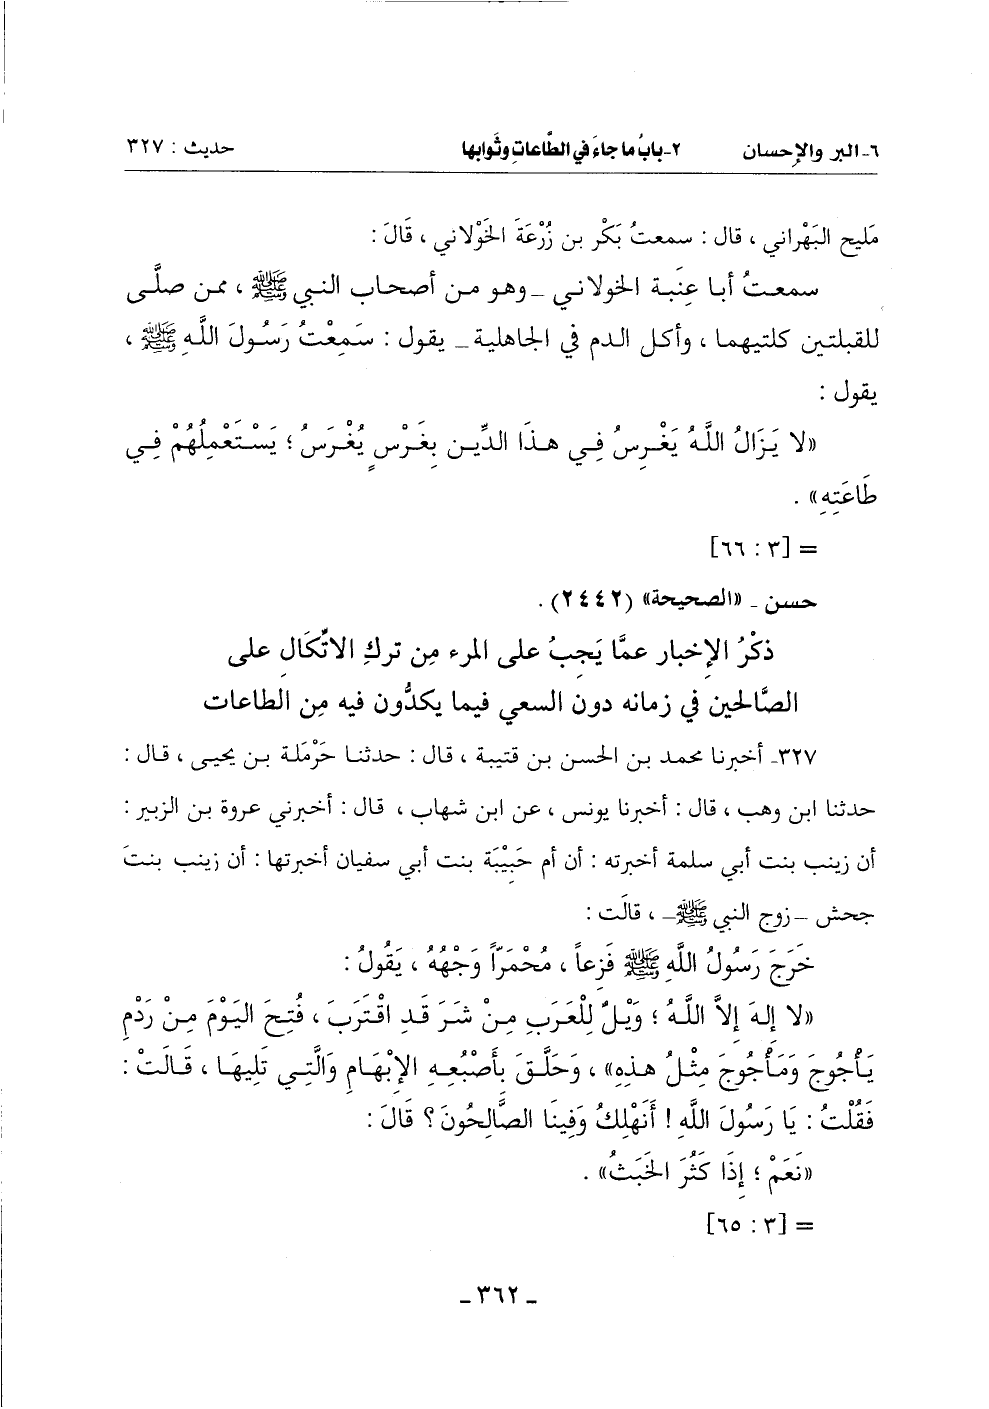 ٦- البر والإحسان ٢- بابُ ما جاءَ في الطَّاعاتِ وثَوابها حديث : ٣٢٧
مَليح البَهْراني ، قال : سمعتُ بَكْر بن زُرْعَةَ الخَوْلاني ، قَالَ :
سمعتُ أبا عِنَبة الخولاني ـ وهو من أصحاب النبي ﷺ ، ممن صلَّى
للقبلتين كلتيهما ، وأكل الدم في الجاهلية ـ يقول : سَمِعْتُ رَسُولَ اللَّهِ ﷺ ،
يقول :
«لا يَزَالُ اللَّهُ يَغْرِسُ فِي هذَا الدِّينِ بِغَرْسٍ يُغْرَسُ ؛ يَسْتَعْمِلُهُمْ فِي
طَاعَتِهِ» .
= [٣ : ٦٦]
حسن ـ «الصحيحة» (٢٤٤٢) .
ذكْرُ الإخبار عمَّا يَجِبُ على المرء مِن تركِ الاتِّكَال على
الصَّالحين في زمانه دون السعي فيما يكدُّون فيه مِن الطاعات
٣٢٧- أخبرنا محمد بن الحسن بن قتيبة ، قال : حدثنا حَرْمَلة بن يحيى ، قال :
حدثنا ابن وهب ، قال : أخبرنا يونس ، عن ابن شهاب ، قال : أخبرني عروة بن الزبير :
أن زينب بنت أبي سلمة أخبرته : أن أم حَبِيْبَة بنت أبي سفيان أخبرتها : أن زينب بنتَ
جحش ـ زوج النبي ﷺ ـ ، قالَت :
خَرَجَ رَسُولُ اللَّهِ ﷺ فَزِعاً ، مُحْمَرّاً وَجْهُهُ ، يَقُولُ :
«لا إلهَ إلاَّ اللَّهُ ؛ وَيْلٌ لِلْعَرَبِ مِنْ شَرَ قَدِ اقْتَرَبَ ، فُتِحَ اليَوْمَ مِنْ رَدْمِ
يَأْجُوجَ وَمَأْجُوجَ مِثْلُ هذِهِ» ، وَحَلَّقَ بِأَصْبُعِهِ الإبْهَامِ وَالَّتِي تَلِيهَا ، قَالَتْ :
فَقُلْتُ : يَا رَسُولَ اللَّهِ ! أَنَهْلِكُ وَفِينَا الصَّالِحُونَ ؟ قَالَ :
«نَعَمْ ؛ إِذَا كَثُرَ الخَبَثُ» .
= [٣ : ٦٥]
ـ ٣٦٢ ـ